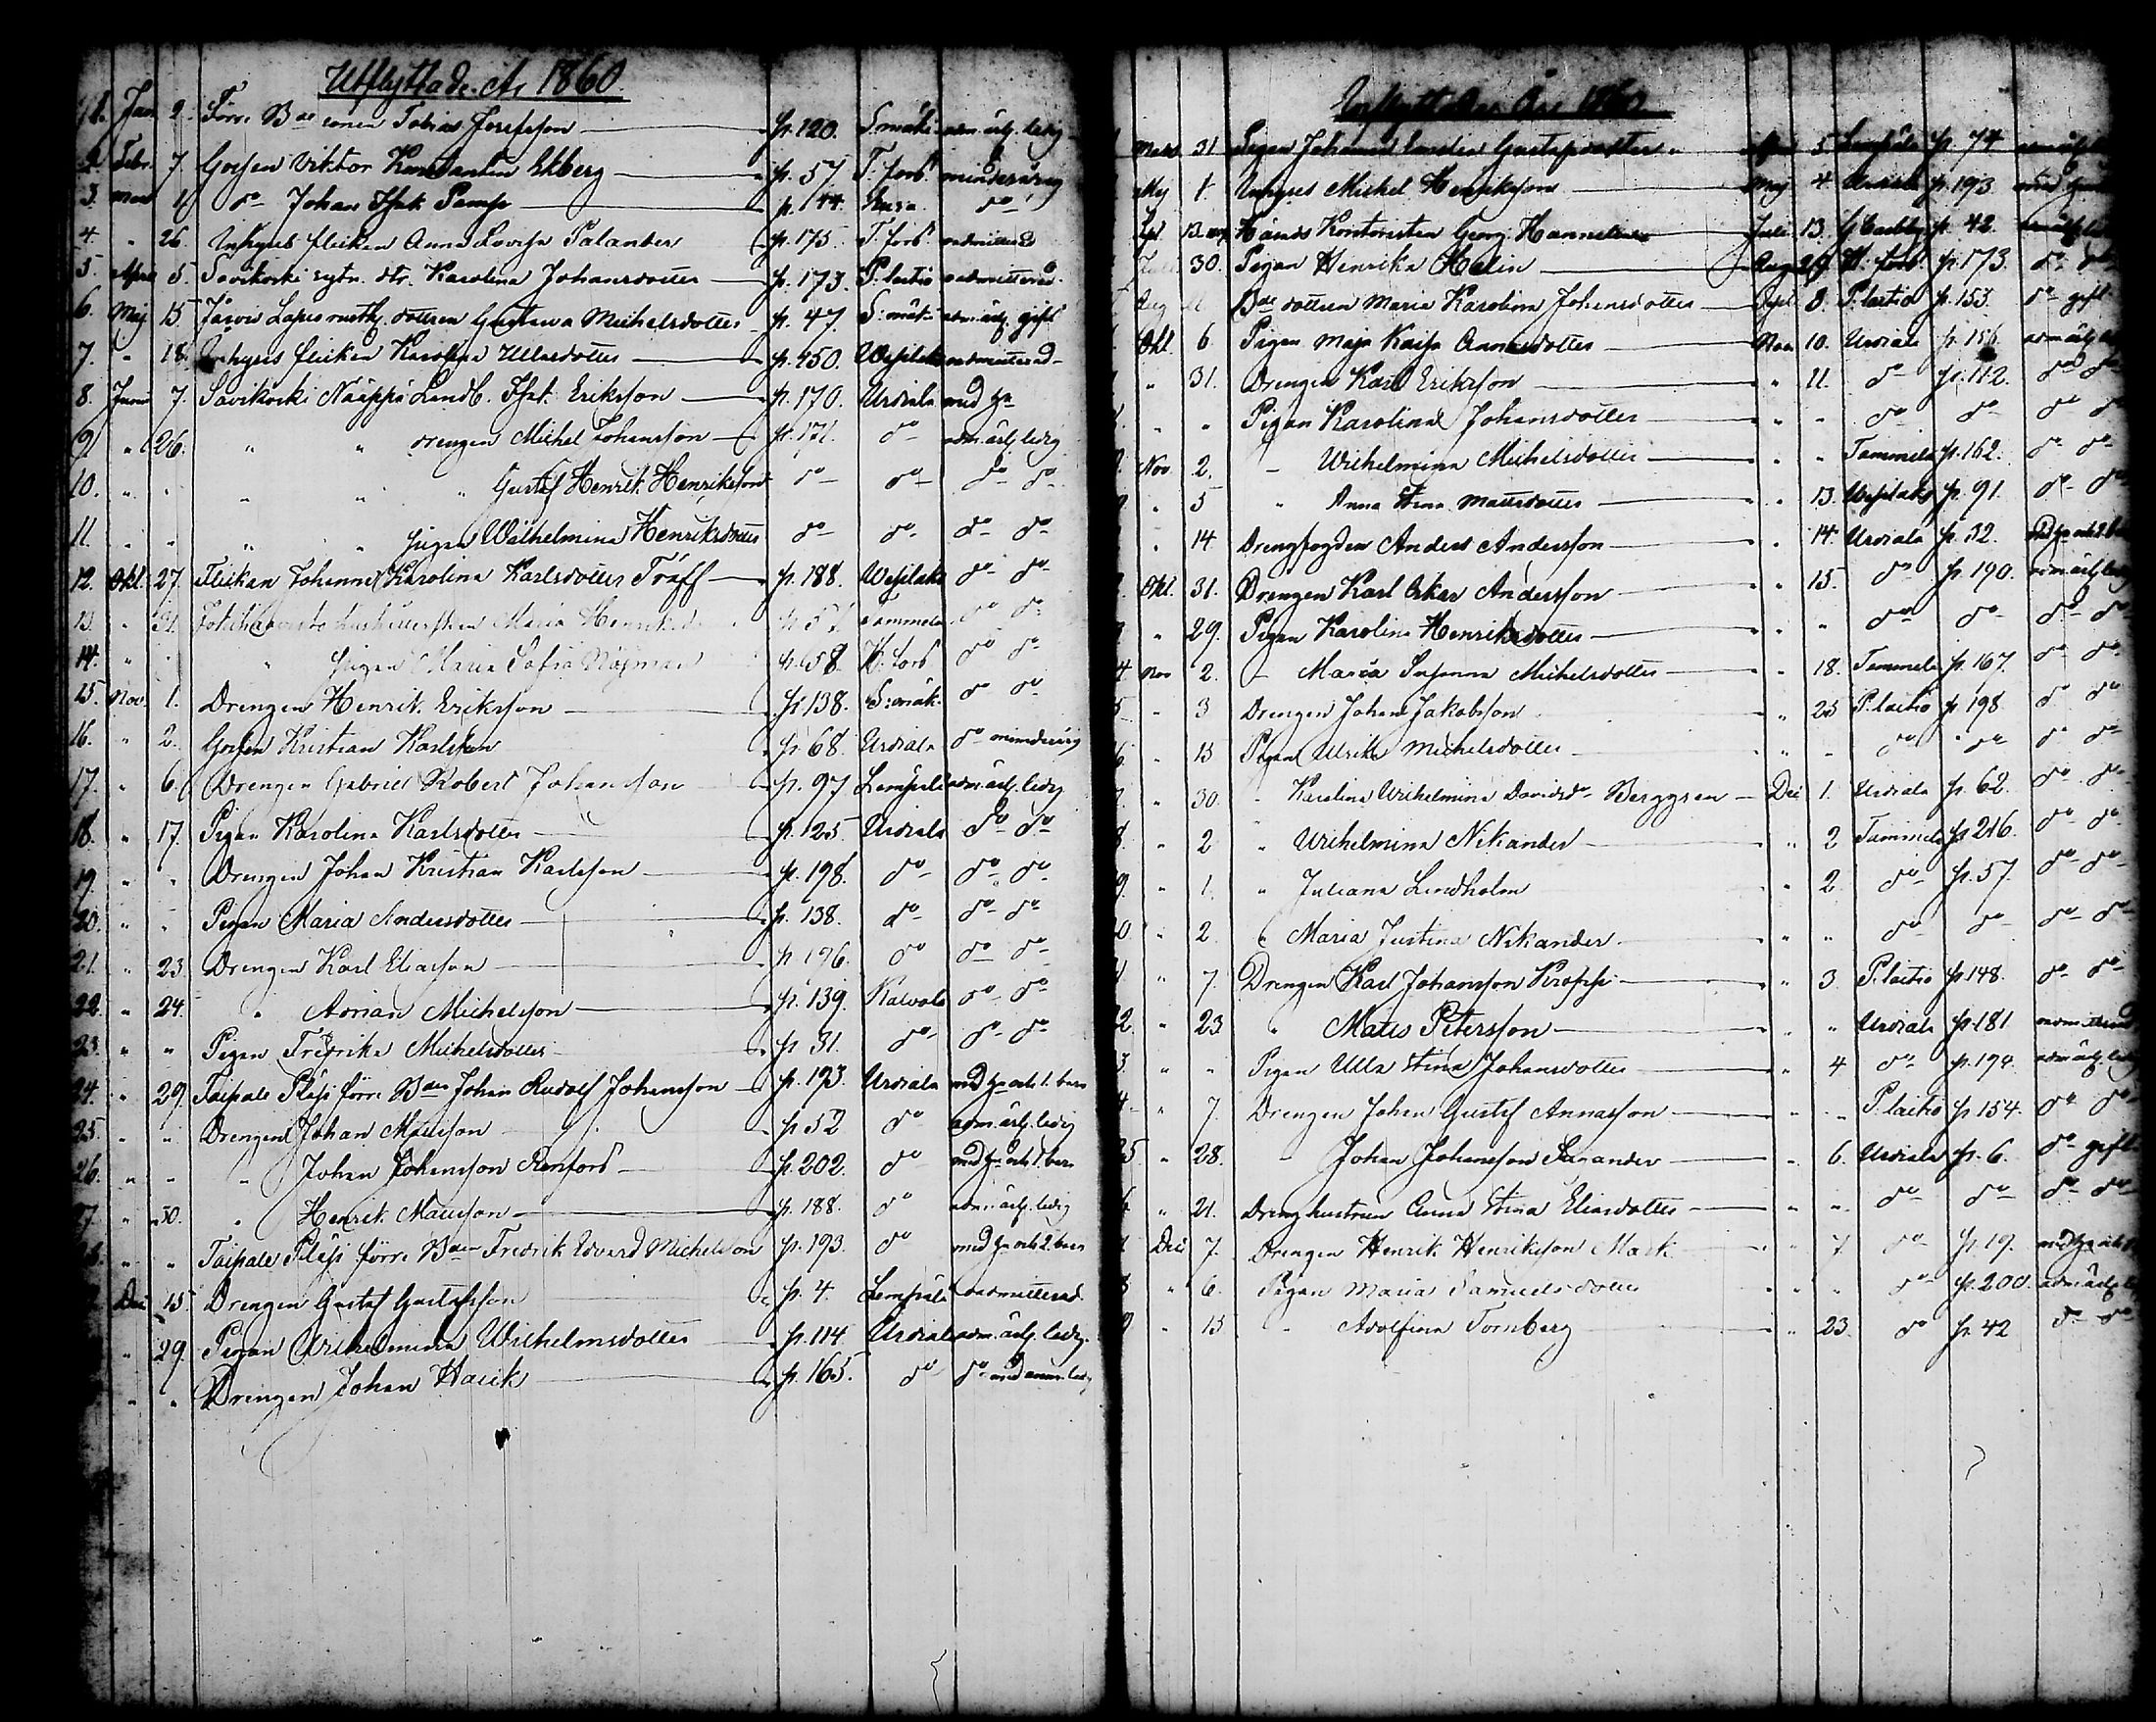 Utflyttade År 1860.
1. Jan 2. Förre Bde sonen Tobias Josefsson p. 120. S:mäki adm. ärl. ledig
2. Febr. 7. Gossen Viktor Konstantin Ekberg p. 57. T:fors minderårig
3. Mars 1. do Johan Isak Pamp p. 144. do
4. " 26. Inhyses flickan Anna Lovisa Palander p. 175. T:fors oadmitterad
5. April 5. Savikoski dtr. Karolina Johansdotter p. 173. P:laitio oadmitterad
6. Maj 15. dottren Gustava Michelsdotter p. 47. S:mäki adm. ärl. gift
7. " 18. Inhyses flickan Karolina Ullasdotter p. 150. Wesilaks oadmitterad
8. Juni 7. Savikoski Näppi Landb. Isak Eriksson p. 170. Urdiala med
9. " 26. " " drengen Michel Johansson p. 171. do adm. ärl. ledig
10. " " " " " Gustaf Henrik Henriksson do do do do
11. " " " " pigan Wilhelmina Henriksdotter do do do do
12. Okt. 27. Flickan Johanna Karolina Karlsdotter Träff p. 188. Wesilaks do do
13. " 31. Maria Tammela do do
14. " " " pigan Maria Sofia p. 58. H:fors do do
15. Nov. 1. Drengen Henrik Eriksson p. 138. S:mäk. do do
16. " 2. Gossen Kristian Karlsson p. 68. Urdiala do minderårig
17. " 6. Drengen Gabriel Robert Johansson p. 97 Lempälä adm. ärl. ledig
18. " 17. Pigan Karolina Karlsdotter p. 125. Urdiala do do
19. " " Drengen Johan Kristian Karlsson p. 198. do do do
20. " " Pigan Maria Andersdotter p. 138. do do do
21. " 23. Drengen Karl Eliasson p. 196. do do do
22. " 24. " Adrian Michelsson p. 139. Kalvola do do
23. " " Pigan Fredrika Michelsdotter p. 31. do do do
24. " 29. Taipale Pläsi förre Bden Johan Rudolf Johansson p. 193. Urdiala med och 1. barn
25. " " Drengen Johan Mattsson p. 52 do adm. ärl. ledig
26. " " " Johan Johansson Renfors p. 202. do med och 1. barn
27. " 30. " Henrik Mattsson p. 188. do adm. ärl. ledig
28. " " Taipale Pläsi förre Bden Fredrik Edvard Michelsson p. 193. do med och 2. barn
Dec 15. Drengen Gustaf Gustafsson p. 4. Lempälä oadmitterad
" 29. Pigan Wilhelmina Wilhelmsdotter p. 114. Urdiala adm. ärl. ledig
" " Drengen Johan Harik p. 165. do do
Inflyttade År 1860
Mars 31. Pigan Johanna Emelia Gustafsdotter April 5. Lempälä p. 74
Maj 1. Inhyses Michel Henriksson Maj 4. Urdiala p. 193. med
13. Kontoristen Georg Juli 13. p. 42.
30. Pigan Henrika Helin Aug H:fors p. 173. do do
Aug Bde dottren Maria Karolina Johansdotter Sept 8. P:laitio p. 153. do gift
Okt. 6. Pigan Maja Kaisa Annasdotter Nov 10. Urdiala p. 156.
" 31. Drengen Karl Eriksson " 11. do p. 112. do do
" " Pigan Karolina Johansdotter " " do do do do
Nov. 2. " Wilhelmina Michelsdotter " " Tammela p. 162. do do
" 5 " Anna Stina Mattsdotter " 13. Wesilaks p. 91. do do
" 14. Drengfogden Anders Andersson " 14. Urdiala p. 32. med
Okt. 31. Drengen Karl Oskar Andersson " 15. do p. 190. adm. ärl. ledig
" 29. Pigan Karolina Henriksdotter " " do do do do
4 Nov 2. " Maria Susanna Michelsdotter " 18. Tammela p. 167. do do
5 " 3 Drengen Johan Jakobsson " 25 P:laitio p. 198 do do
6. " 13 Pigan Ulrika Michelsdotter " " do do do do
7. " 30. " Karolina Wilhelmina Davidsdr Berggren Dec 1. Urdiala p. 62. do do
8. " 2 " Wilhelmina Nikander " 2 Tammela p. 216. do do
9. " 1. " Juliana Lindholm " 2. do p. 57. do do
0. " 2. " Maria Justina Nikander " " do do do do
" 7. Drengen Karl Johansson Kroppi " 3. P:laitio p. 148. do do
2. " 23 " Matts Petersson " " Urdiala p. 181 oadmitterad
3. " " Pigan Ulla Stina Johansdotter " 4 do p. 194. adm. ärl. ledig
4 " 7. Drengen Johan Gustaf Annasson " " P:laitio p. 154. do do
25 " 28. Johan Johansson Saxander " 6. Urdiala p. 6. do gift
6 " 21. Drenghustrun Anna Stina Eliasdotter " " do do do do
Dec 7. Drengen Henrik Henriksson Mark " 7 do p. 19. med
8 " 6. Pigan Maria Samuelsdotter " " do p. 200.
9 " 13 " Adolfina Tornberg " 23. do p. 42 do do